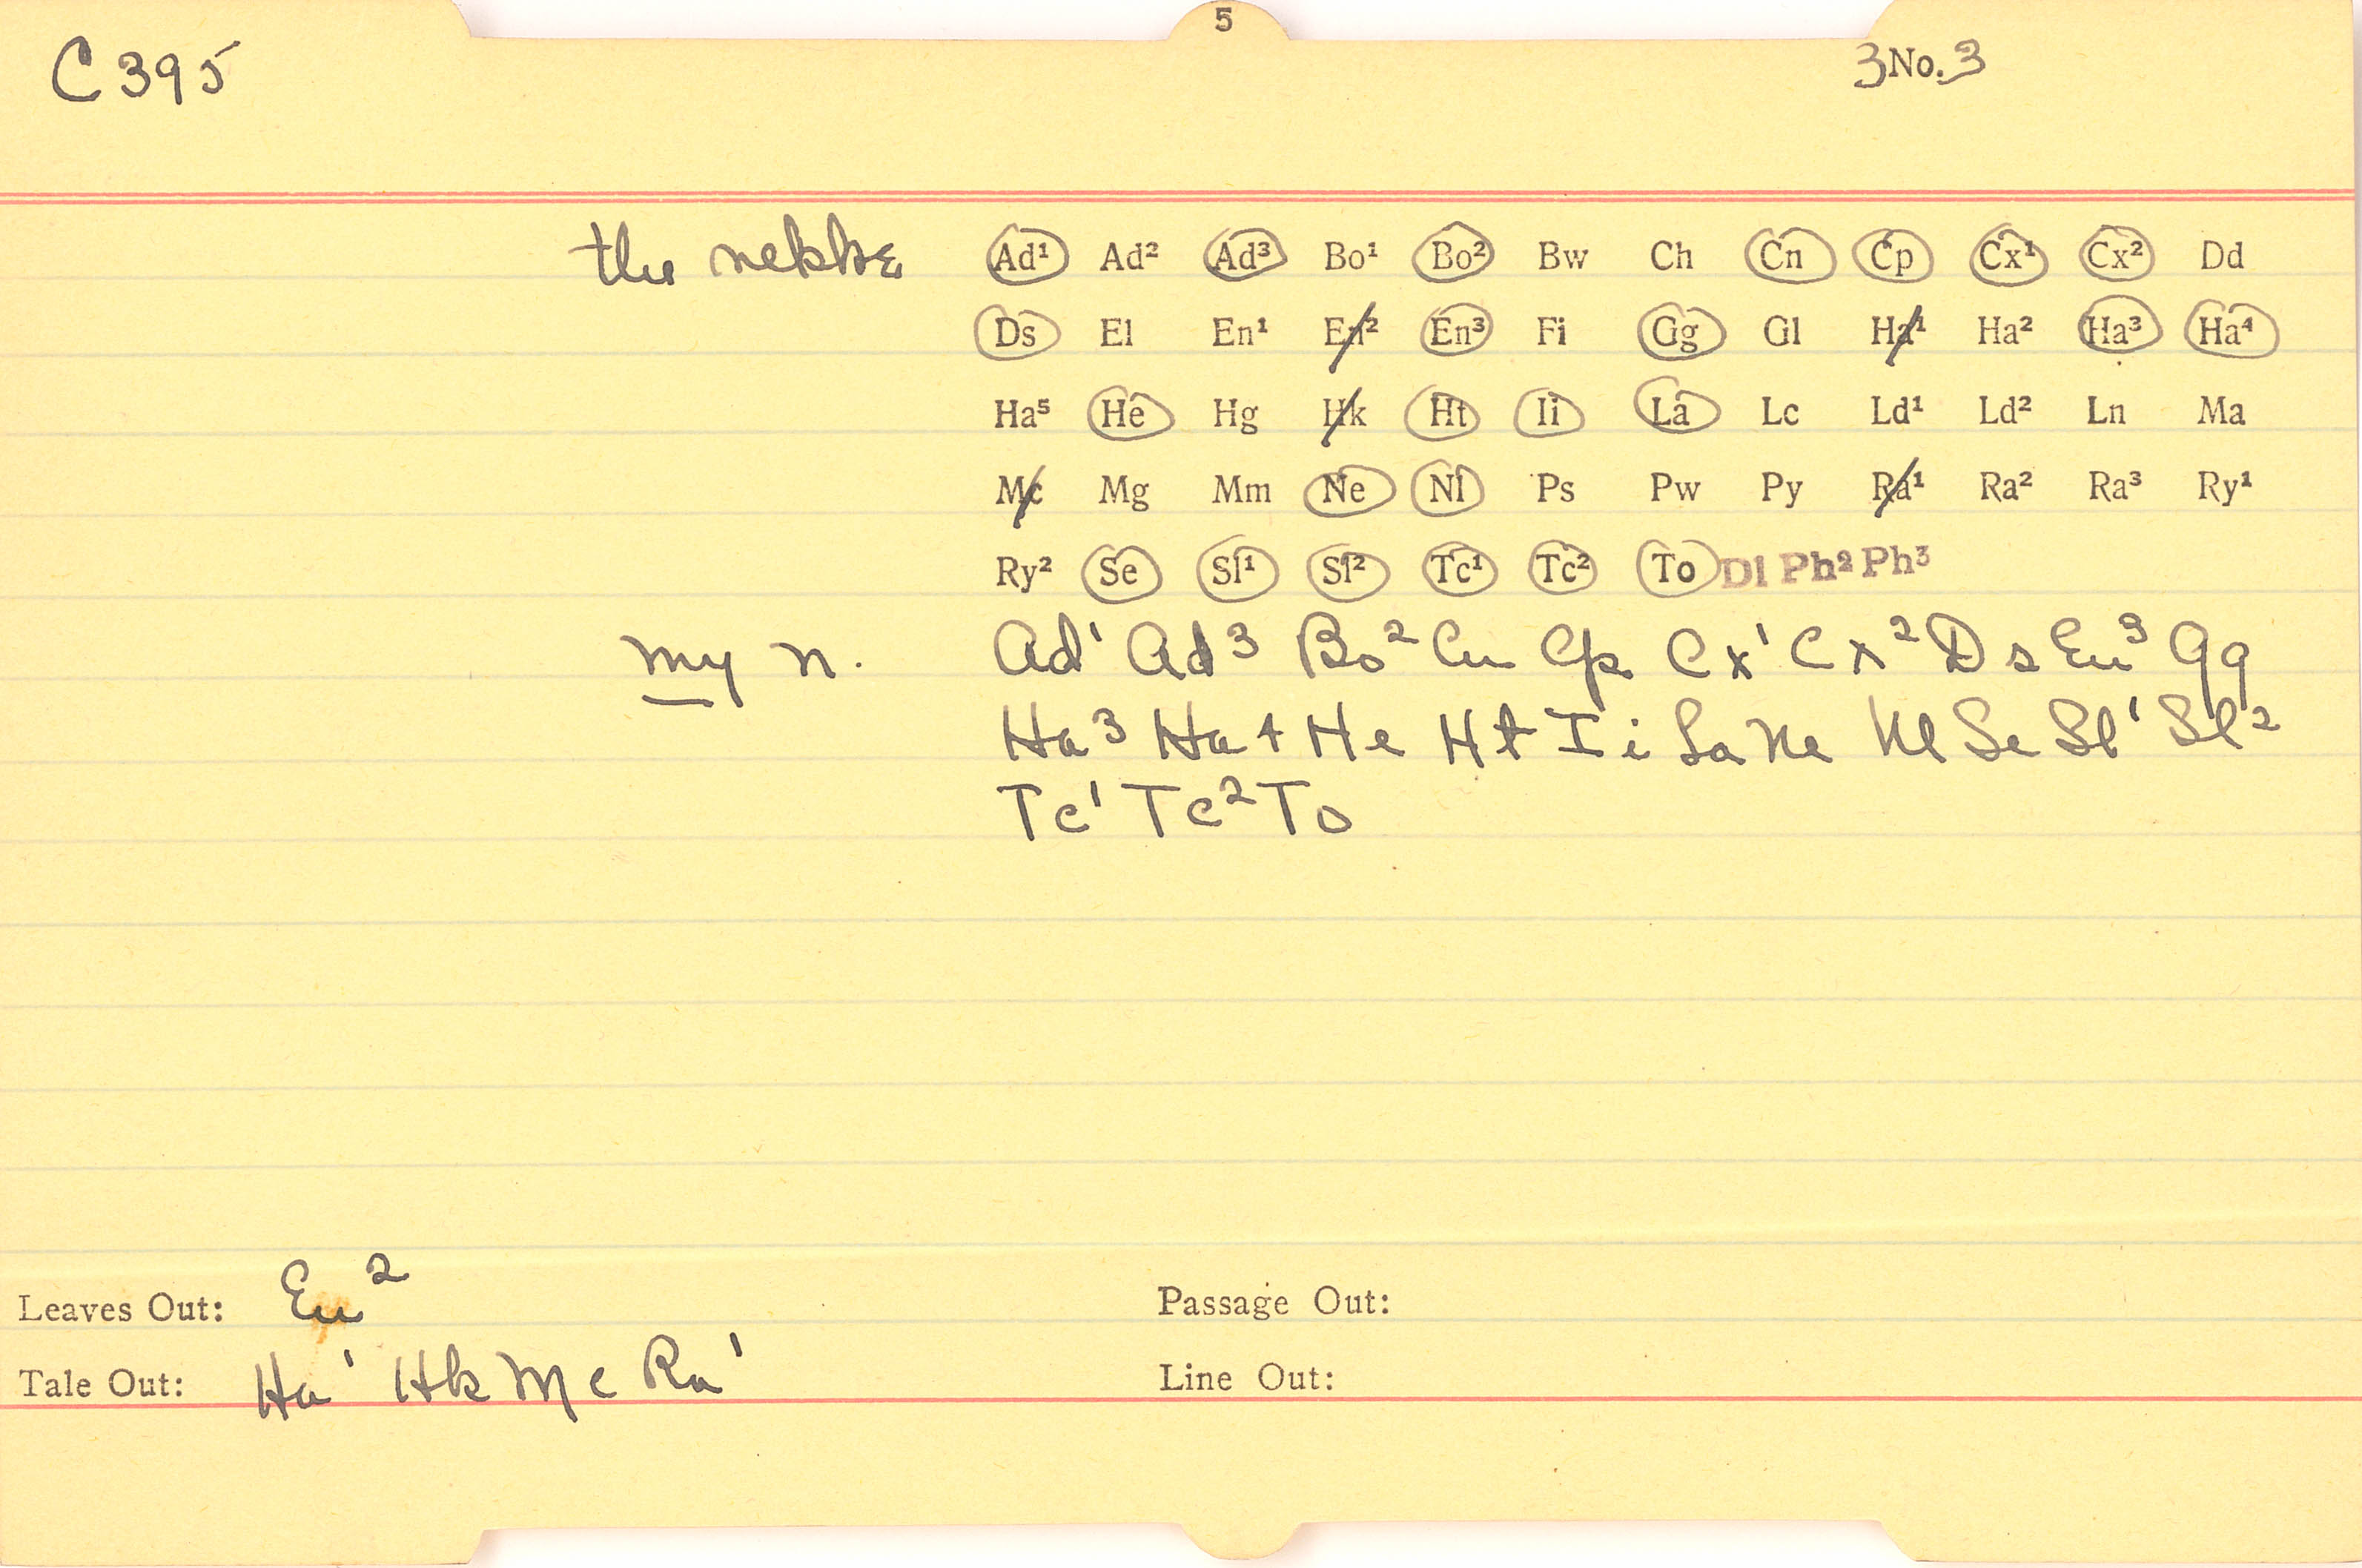 5
C 395 3 No. 3
the nekke Ad¹ Ad² Ad³ Bo¹ Bo² Bw Ch Cn Cp Cx¹ Cx² Dd
Ds El En¹ En² En³ Fi Gg Gl Ha¹ Ha² Ha³ Ha⁴
Ha⁵ He Hg Hk Ht Ii La Lc Ld¹ Ld² Ln Ma
Mc Mg Mm Ne Nl Ps Pw Py Ra¹ Ra² Ra³ Ry¹
Ry² Se Sl¹ Sl² Tc¹ Tc² To Dl Ph² Ph³
my n. Ad¹ Ad³ Bo² Cn Cp Cx¹ Cx² Ds En³ Gg
Ha³ Ha⁴ He Ht Ii La Ne Nl Se Sl¹ Sl²
Tc¹ Tc² To
Leaves Out: En² Passage Out:
Tale Out: Ha¹ Hk Mc Ra¹ Line Out: